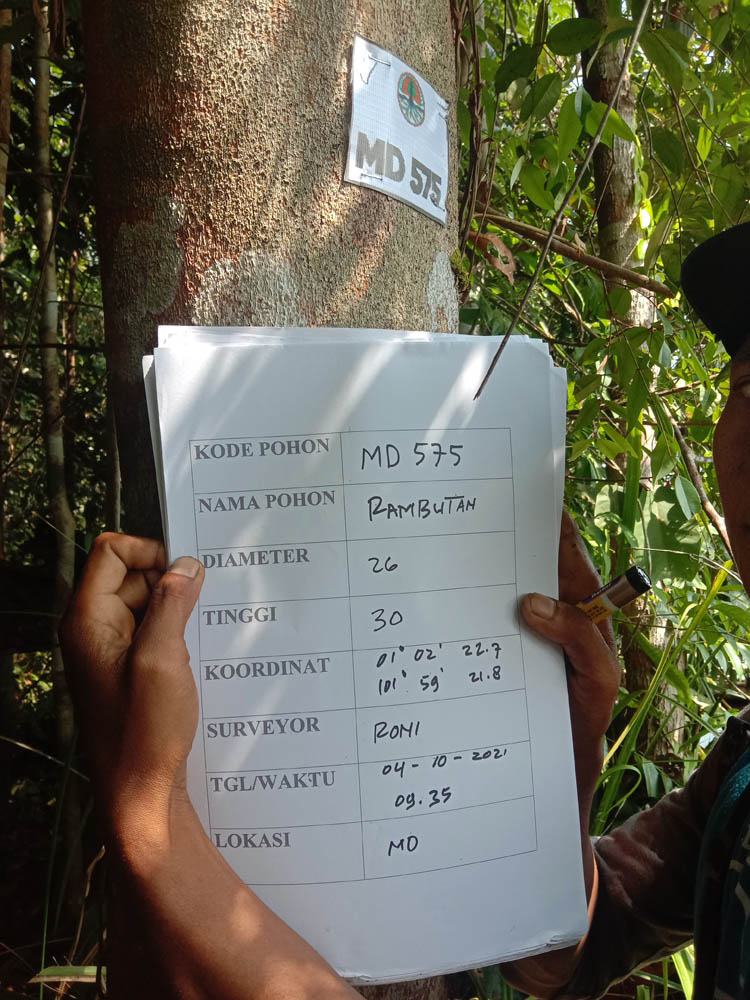 MD 575
KODE POHON MD 575
NAMA POHON RAMBUTAN
DIAMETER 26
TINGGI 30
KOORDINAT 01° 02' 22.7
101° 59' 21.8
SURVEYOR RONI
TGL/WAKTU 04-10-2021
09.35
LOKASI MD